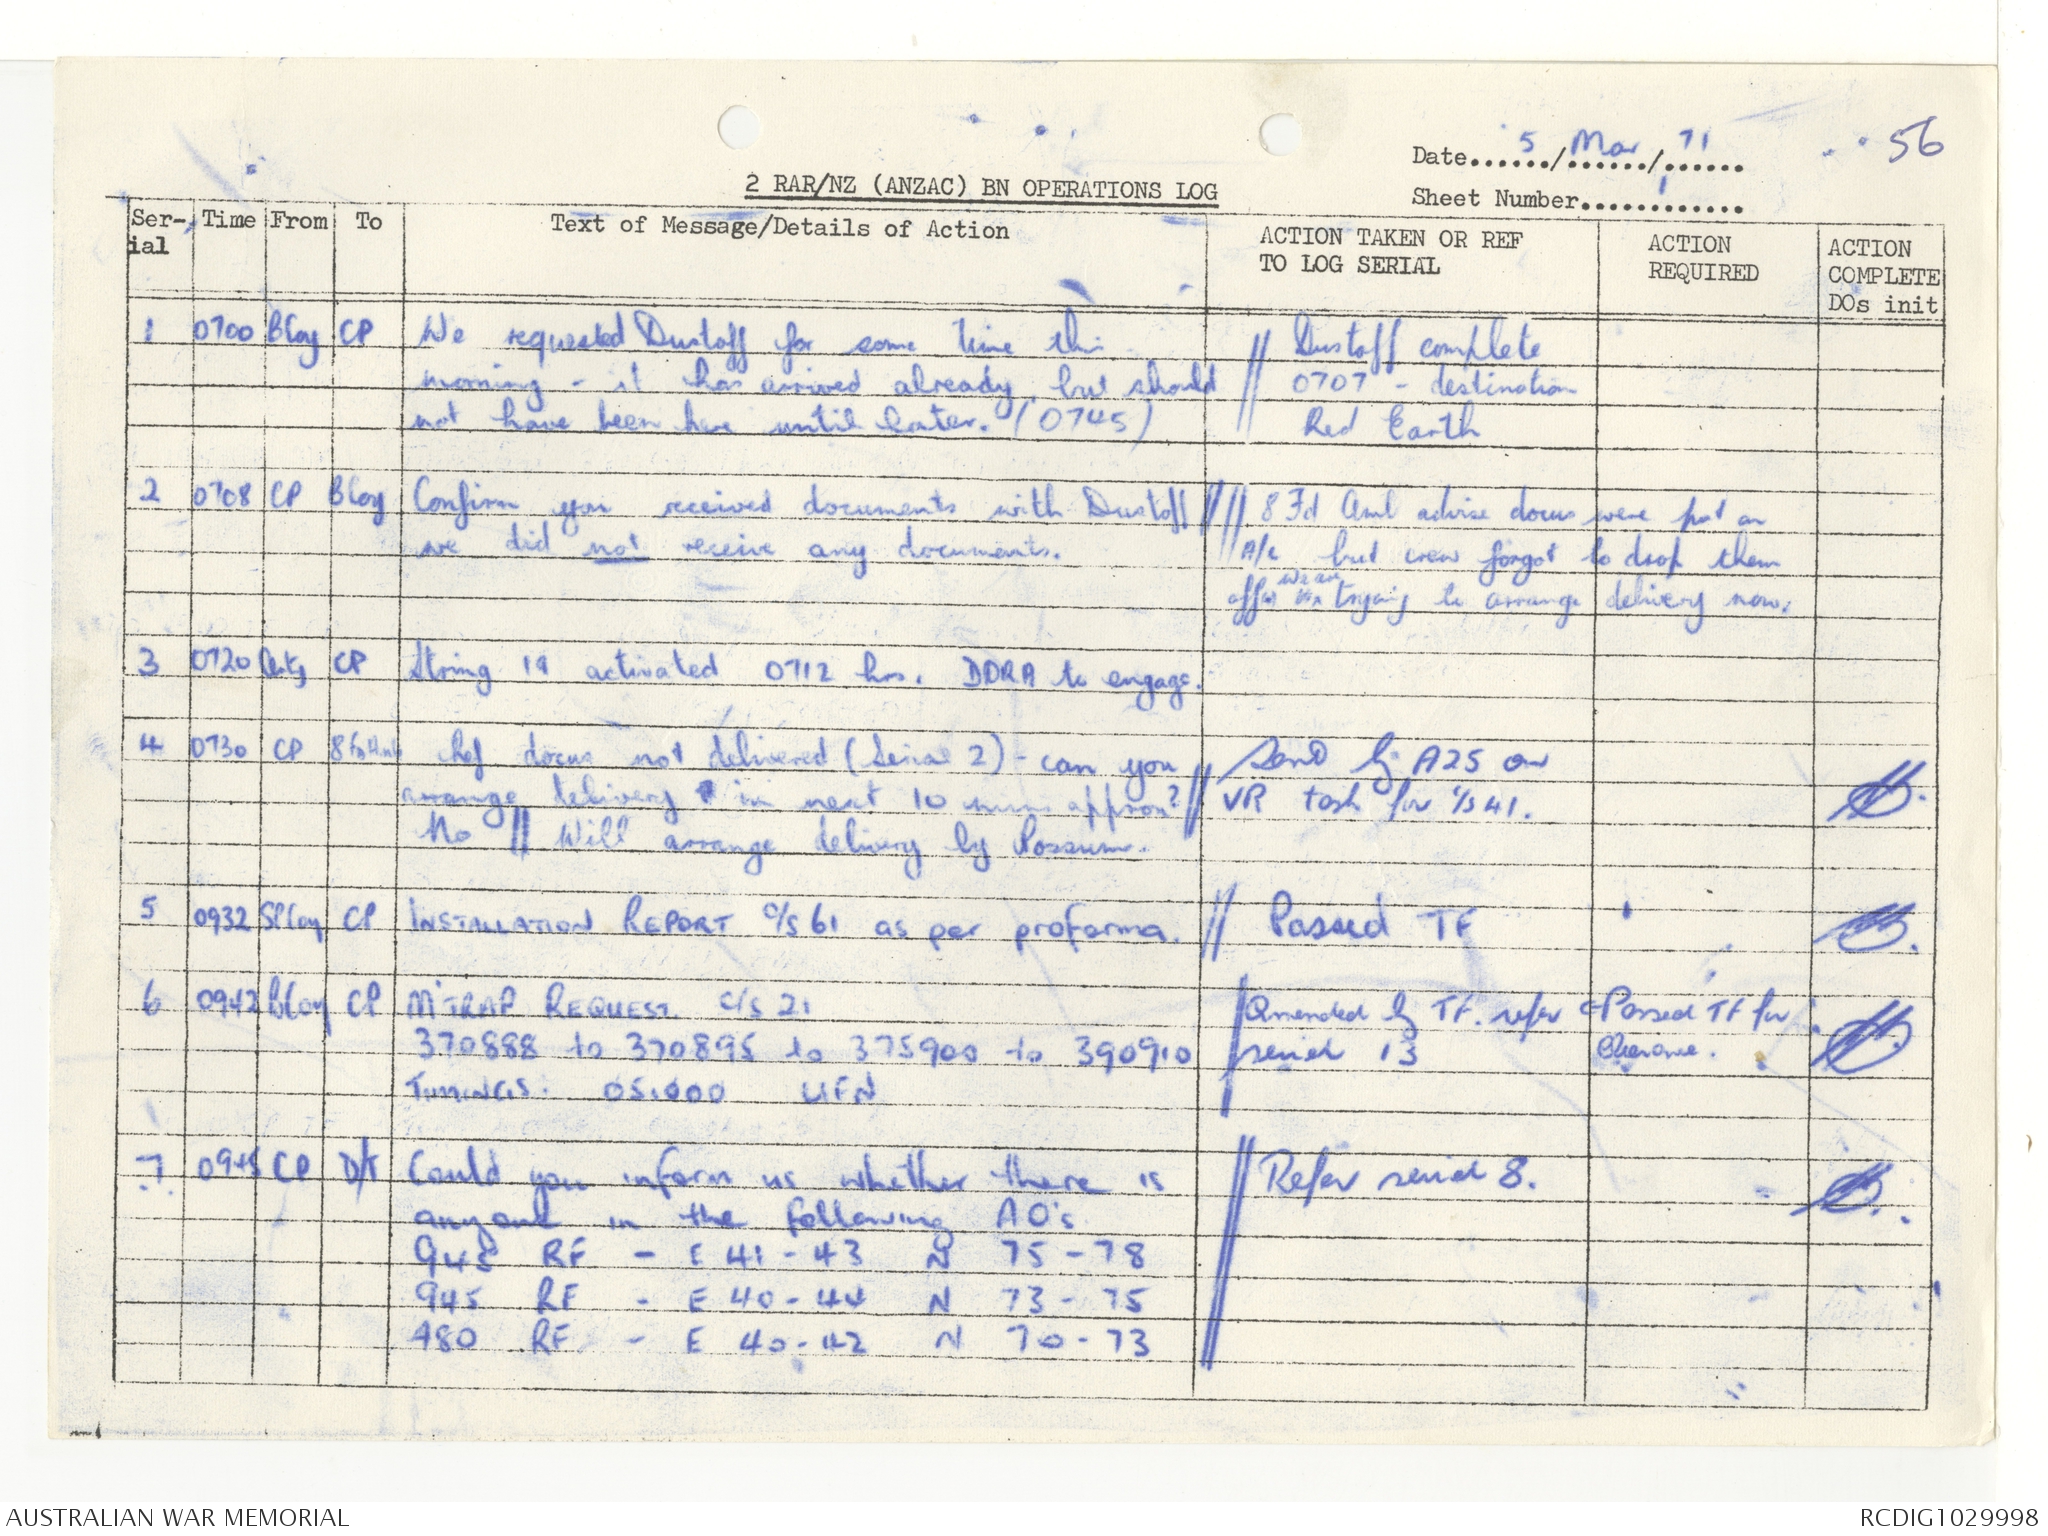 56
Date 5 / Mar / 71
Sheet Number 1
2 RAR/NZ (ANZAC) BN OPERATIONS LOG
Ser-ial Time From To Text of Message/Details of Action ACTION TAKEN OR REF TO LOG SERIAL ACTION REQUIRED ACTION COMPLETE DOs init
1 0700 BCoy CP We requested Dustoff for some time this // Dustoff complete
morning - it has arrived already, but should 0707 - destination
not have been here until later. (0745) Red Earth
2 0708 CP BCoy Confirm you received documents with Dustoff // 8 Fd Amb advise docus were put on
we did not receive any documents. A/c but crew forgot to drop them
off. We are trying to arrange delivery now.
3 0720 Arty CP String 19 activated 0712 hrs. DDRA to engage.
4 0730 CP 8 Fd Amb Ref docus not delivered (Serial 2) - can you // Send by A25 on
arrange delivery in next 10 mins approx? VR task for c/s 41.
No // Will arrange delivery by Possum.
5 0932 SPCoy CP INSTALLATION REPORT C/S 61 as per proforma. // Passed TF
6 0942 BCoy CP M'TRAP REQUEST. C/S 21 Amended by TF. refer Passed TF for
370888 to 370895 to 375900 to 390910 serial 13 Clearance.
TIMINGS: 051000 UFN
7 0945 CP D/T Could you inform us whether there is // Refer serial 8.
anyone in the following AO's
945 RF - E 41-43 N 75-78
945 RF - E 40-44 N 73-75
480 RF - E 40-42 N 70-73
AUSTRALIAN WAR MEMORIAL RCDIG1029998